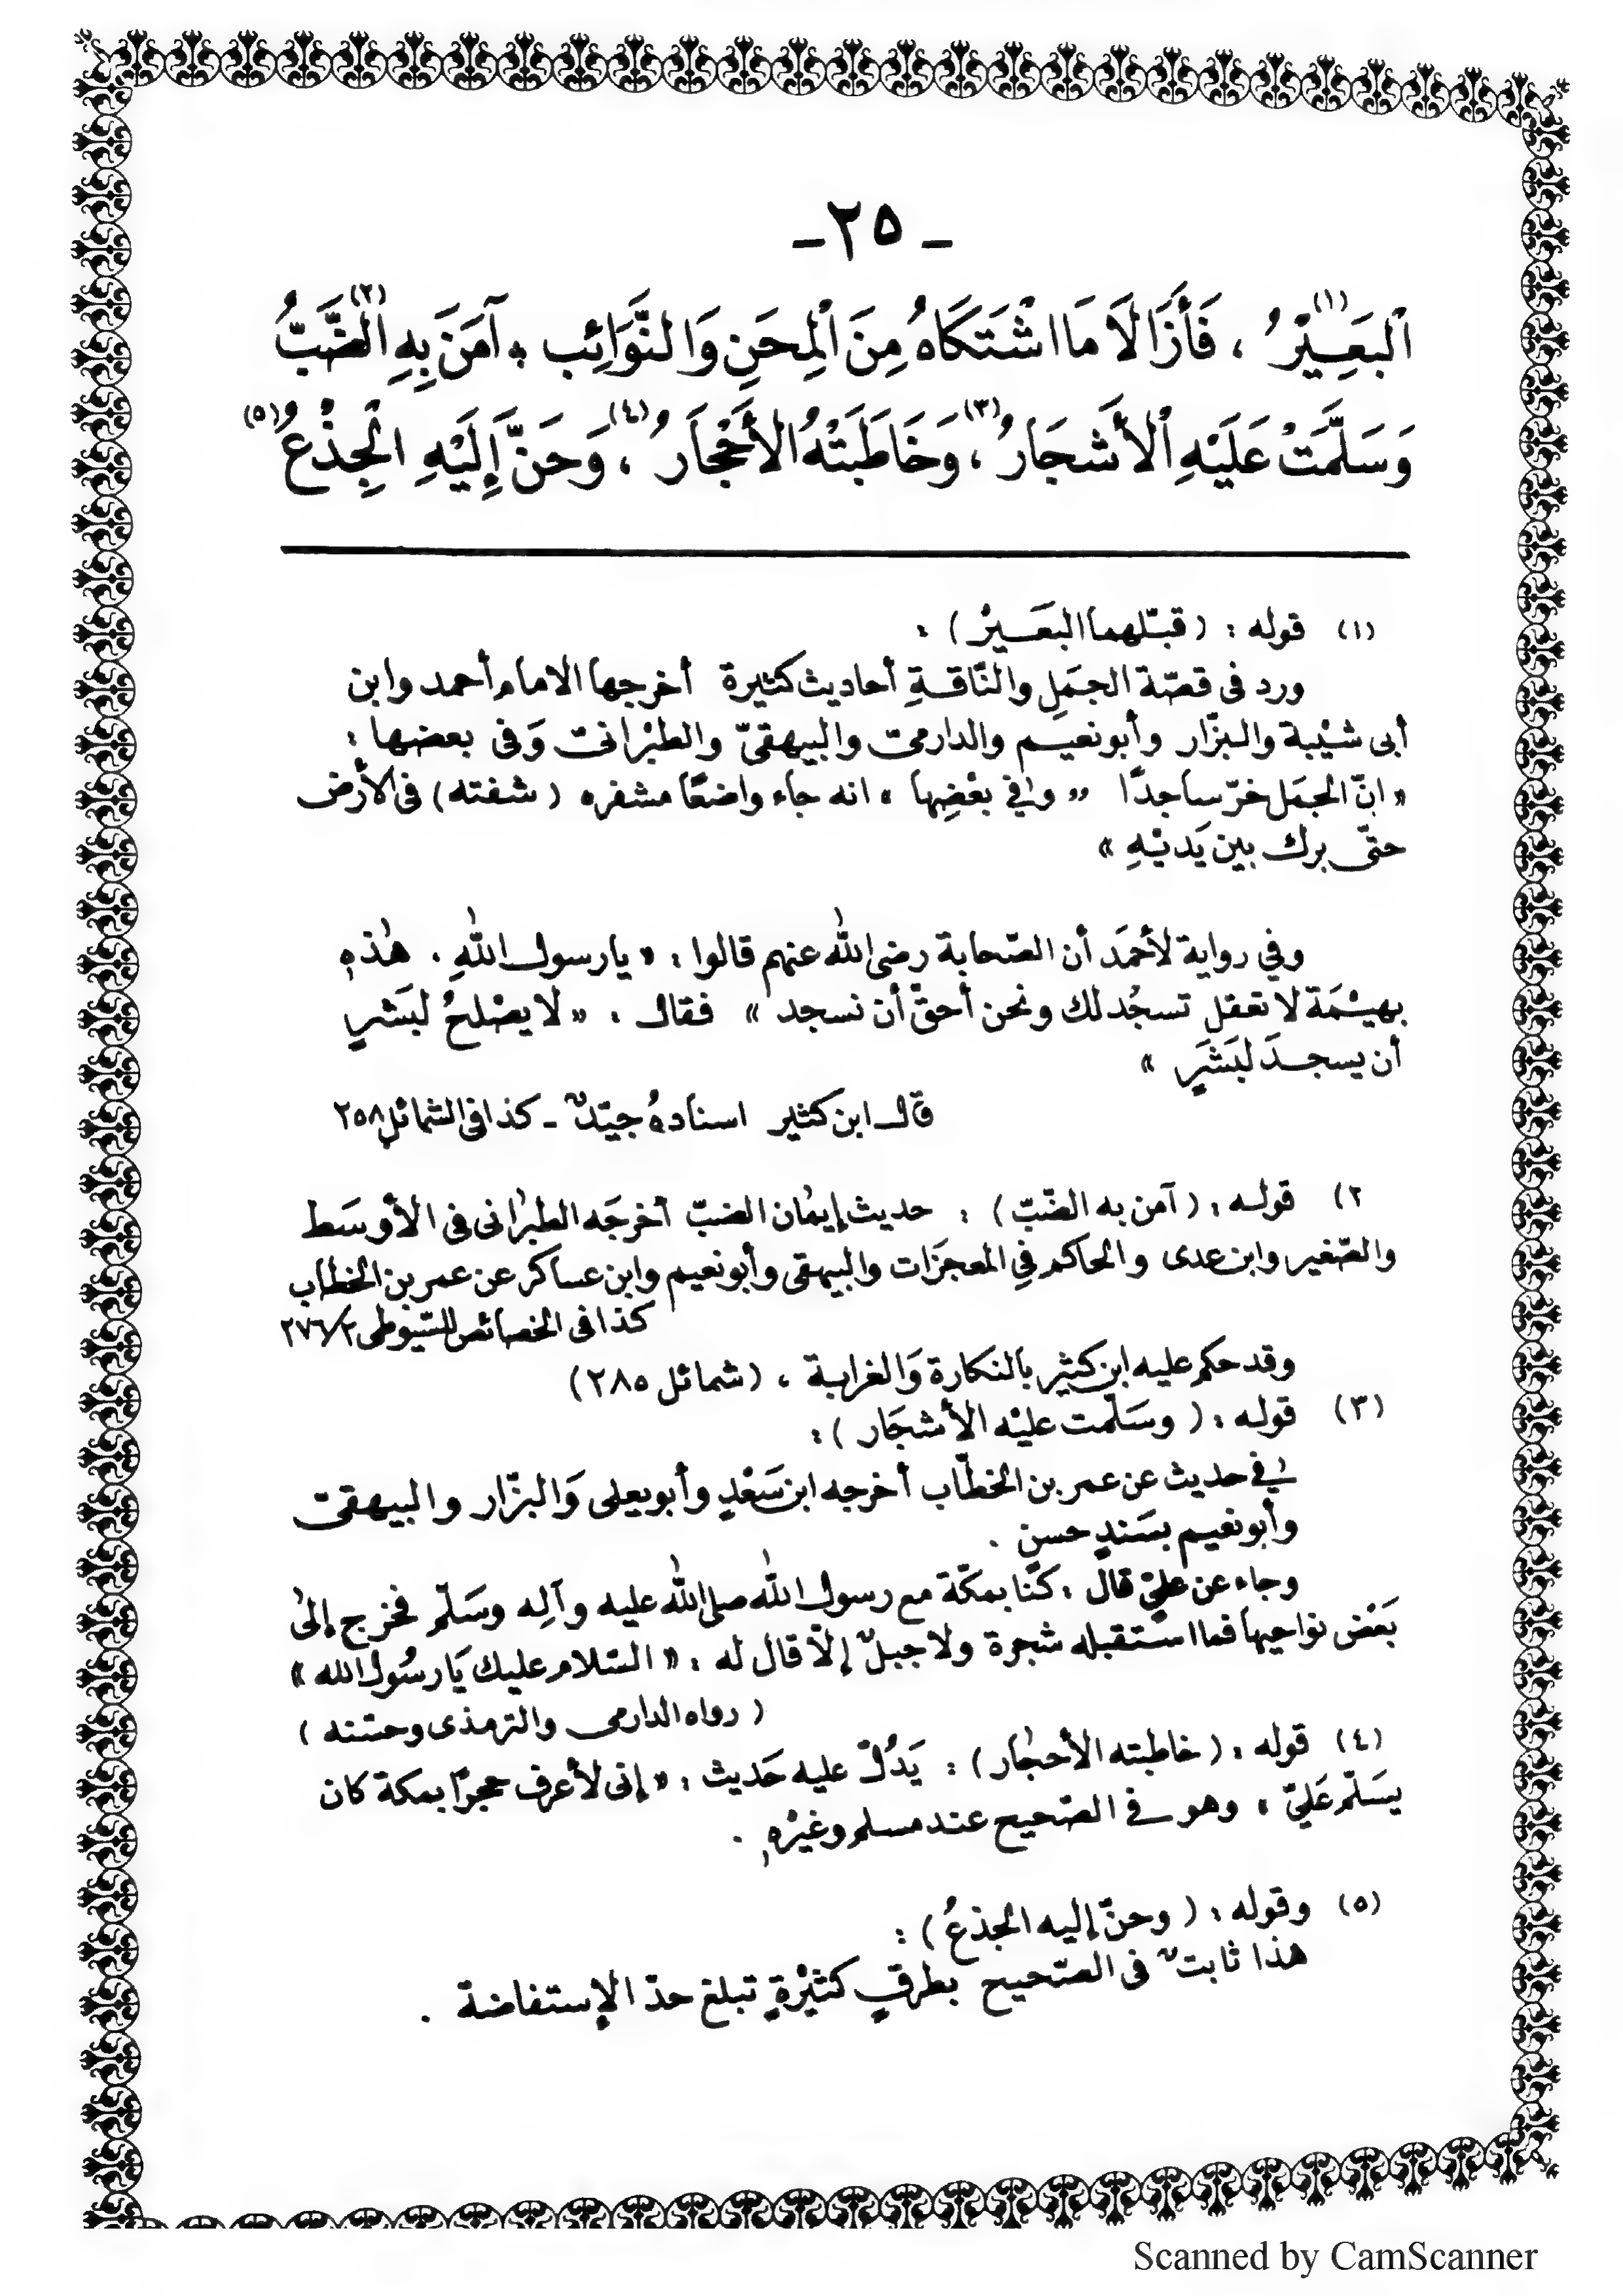 - ٢٥ -
اَلبَعِيْرُ (١) ، فَأَزَالَا مَا اشْتَكَاهُ مِنَ اْلمِحَنِ وَالنَّوَائِب * آمَنَ بِهِ الضَّبُّ (٢)
وَسَلَّمَتْ عَلَيْهِ اْلأَشَجَارُ (٣) ، وَخَاطَبَتْهُ الأَحْجَارُ (٤) ، وَحَنَّ إِلَيْهِ الْجِذْعُ (٥)
(١) قوله : ( قبّلهما البَعَيرْ ) :
ورد فى قصّة الجمَلِ والنّاقةِ أحاديث كثيرة أخرجها الامام أحمد وابن
أبى شيْبة والبزّار وأبونعيم والدارمىّ والبيهقىّ والطبْرانىّ وَفى بعضها :
« انّ الجمَل خرّ ساجدًا » وفي بعْضِها « انه جاء واضعًا مشفره ( شفته ) فى الأرض
حتّى برك بين يَديْهِ »
وفي رواية لأحمَد أن الصّحابة رضى الله عنهم قالوا : « يارسول اللهِ . هٰذهِ
بهيْمَة لا تعقل تسجُد لك ونحن أحقّ أن نسجد » فقال : « لا يصْلحُ لبَشرٍ
أن يسجدَ لبَشَرٍ »
قال ابن كثير اسنادهُ جيّدٌ - كذا فى الشمائل ٢٥٨
٢) قوله : ( آمن به الضّبّ ) : حديث إيمان الضبّ أخرجَه الطبرانى فى الأوسَط
والصّغير وابن عدى والحاكم فِي المعجزَات والبيهقى وأبو نعيم وابن عساكر عن عمر بن الخطاب
كذا فى الخصائص للسّيوطى ٢/٢٧٦
وقد حكم عليه ابن كثير بالنكارة وَالغرابة ، ( شمائل ٢٨٥ )
(٣) قوله : ( وسَلّمت عليْه الأشجَار ) :
في حديث عن عمر بن الخطّاب أخرجه ابن سَعْدٍ وأبو يعلى وَالبزّار والبيهقىّ
وأبو نعيم بسَندٍ حسنٍ .
وجاء عن عليّ قال : كنّا بمكّة مع رسول الله صلى الله عليه وآلِه وسَلّم فخرج إلىٰ
بَعْض نواحيها فما استقبله شجرة ولا جبلٌ إلّا قال له : « السّلام عليك يَا رسُول الله »
( رواه الدارمى والترمذى وحسّنه )
(٤) قوله : ( خاطبته الأحجٰار ) : يَدُلّ عليه حَديث : « إنى لأعرف حجرًا بمكة كان
يسَلّم عَليّ » وهو في الصّحيح عند مسلم وغيْرهِ .
(٥) وقوله : ( وحنّ إليه الجذعُ ) :
هذا ثابتٌ فى الصّحيح بطرقٍ كثيْرةٍ تبلغ حدّ الإستفاضة .
Scanned by CamScanner